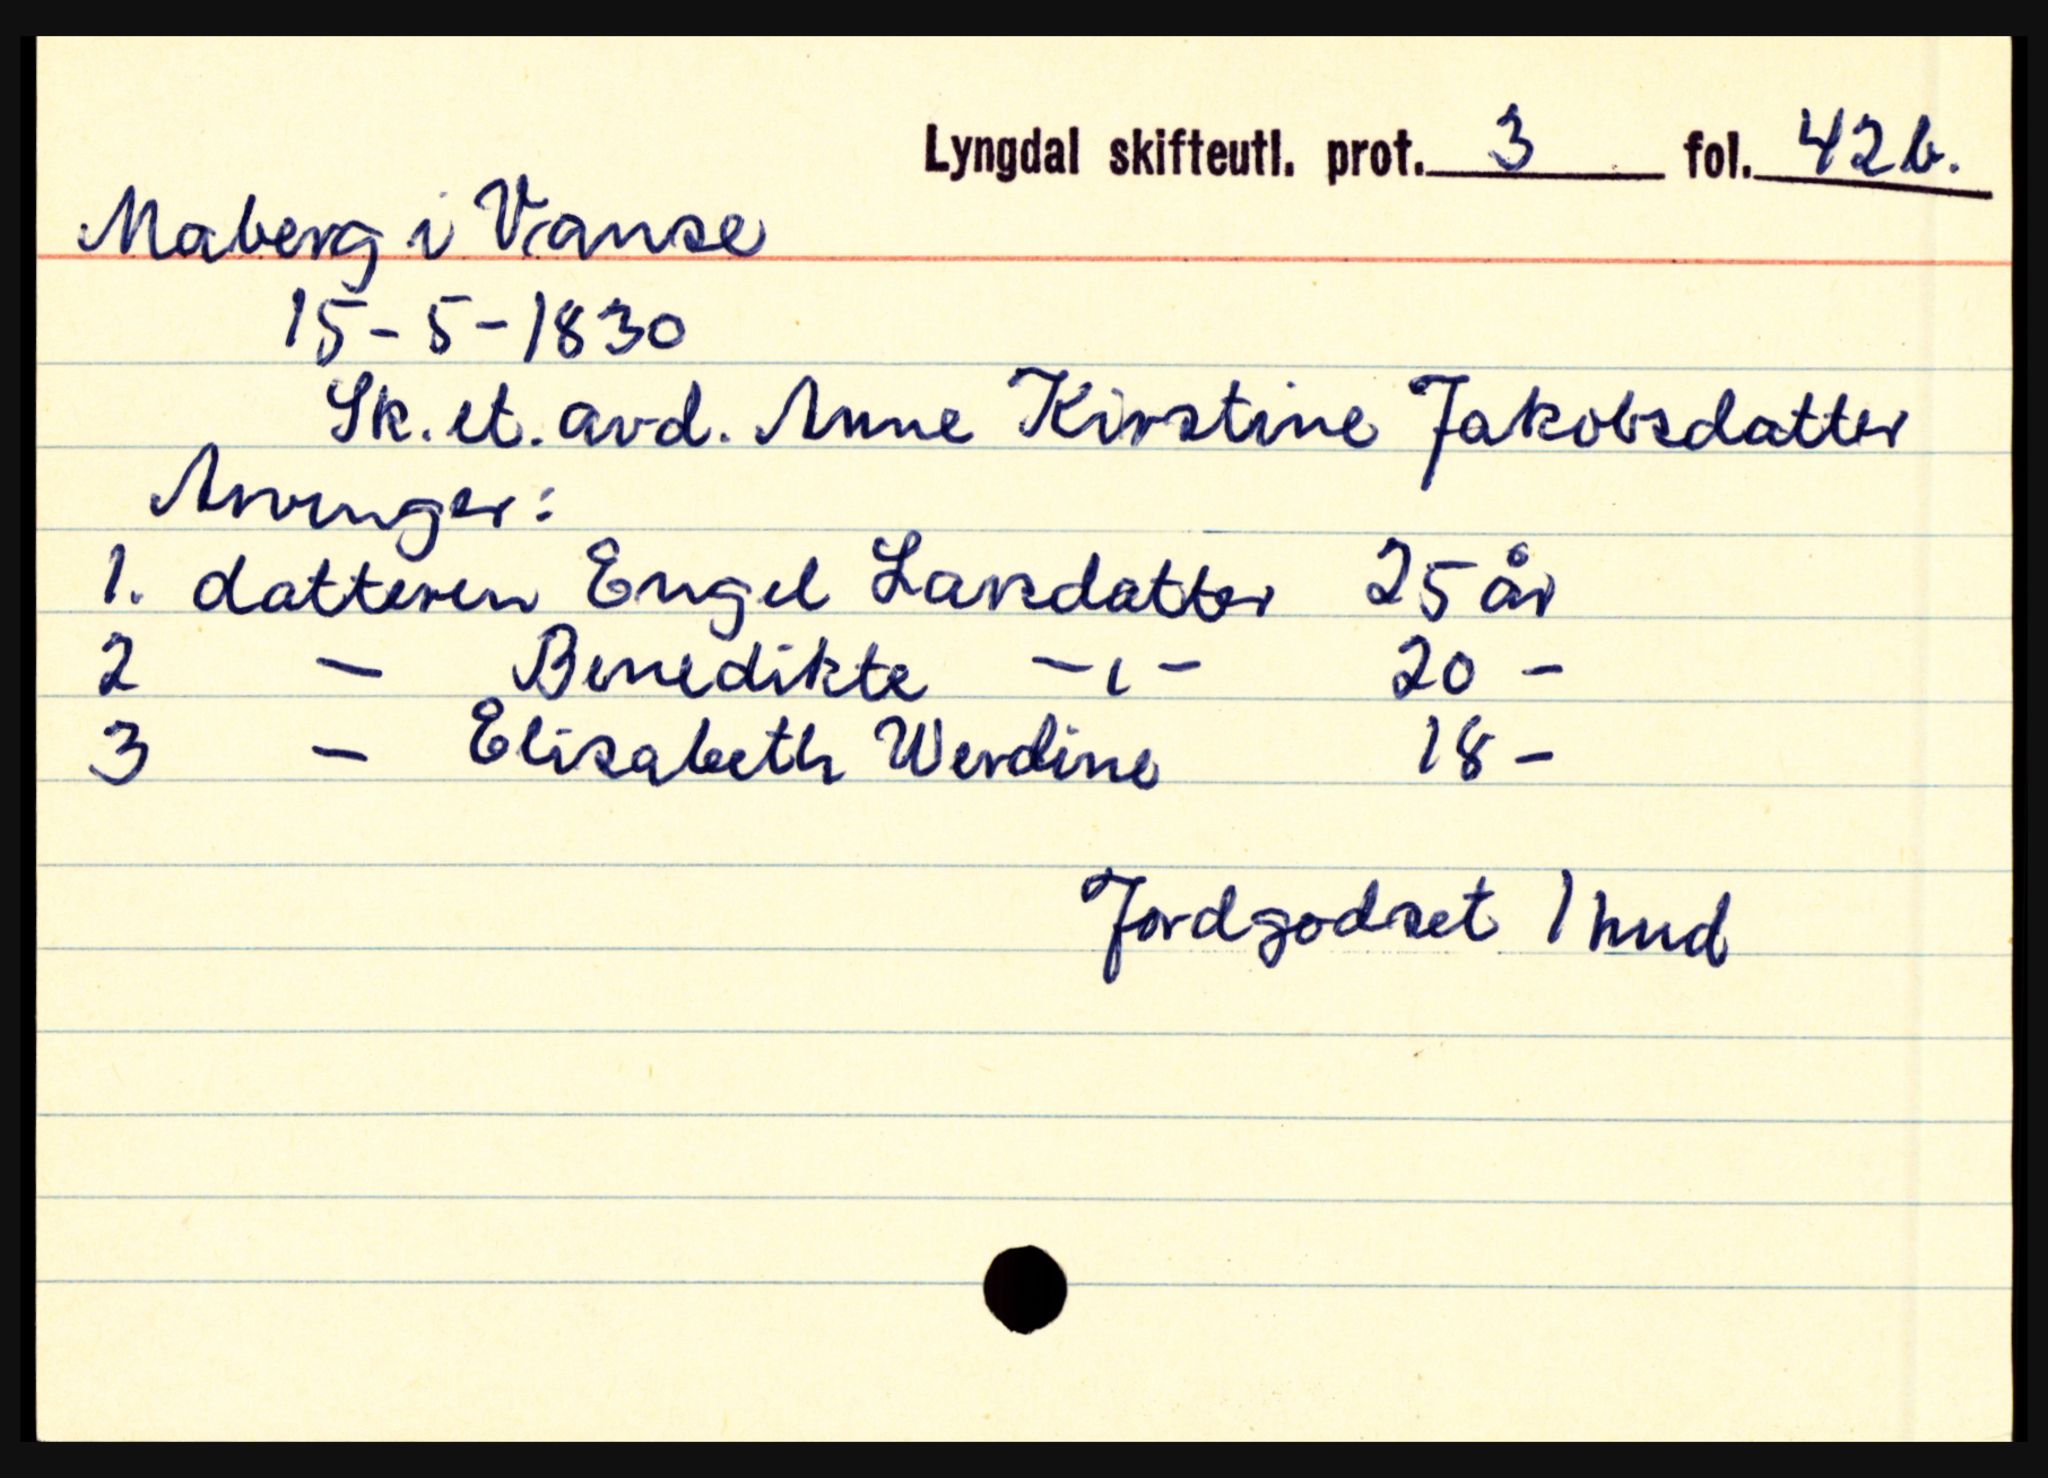 Lyngdal skifteutl. prot. 3 fol. 42b.
Maberg i Vanse
15-5-1830
Sk. et. avd. Anne Kirstine Jakobsdatter
Arvinger:
1. datteren Engel Larsdatter 25 år
2 — Benedikte —ı— 20 -
3 — Elisabeth Werdine 18 -
Jordgodset 1 hud